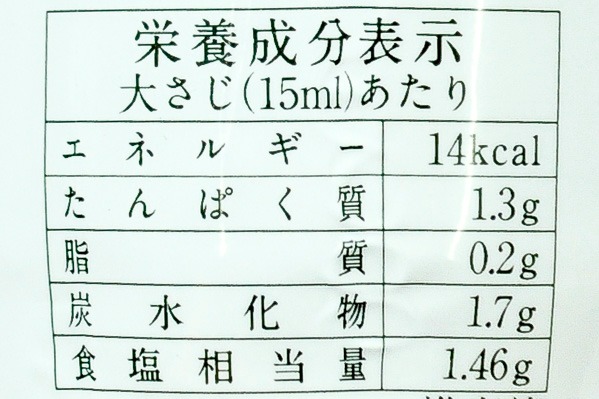 栄養成分表示
大さじ(15ml)あたり
エネルギー 14kcal
たんぱく質 1.3g
脂質 0.2g
炭水化物 1.7g
食塩相当量 1.46g